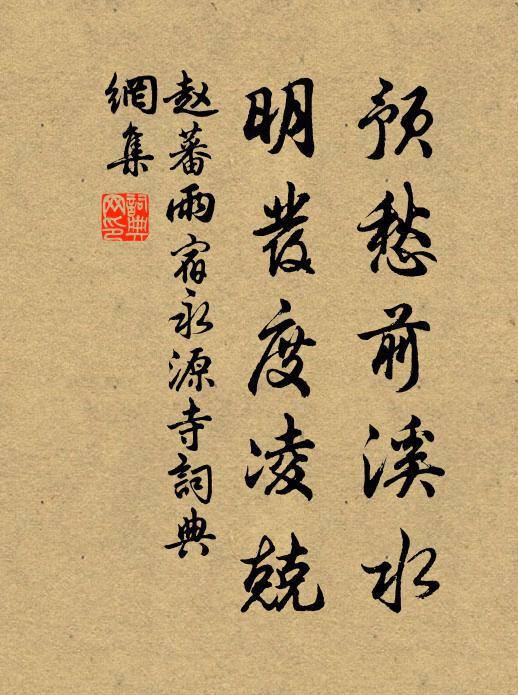 预愁前溪水
明發度凌兢
赵蕃雨宿永源寺詞典
網集
詞典网印